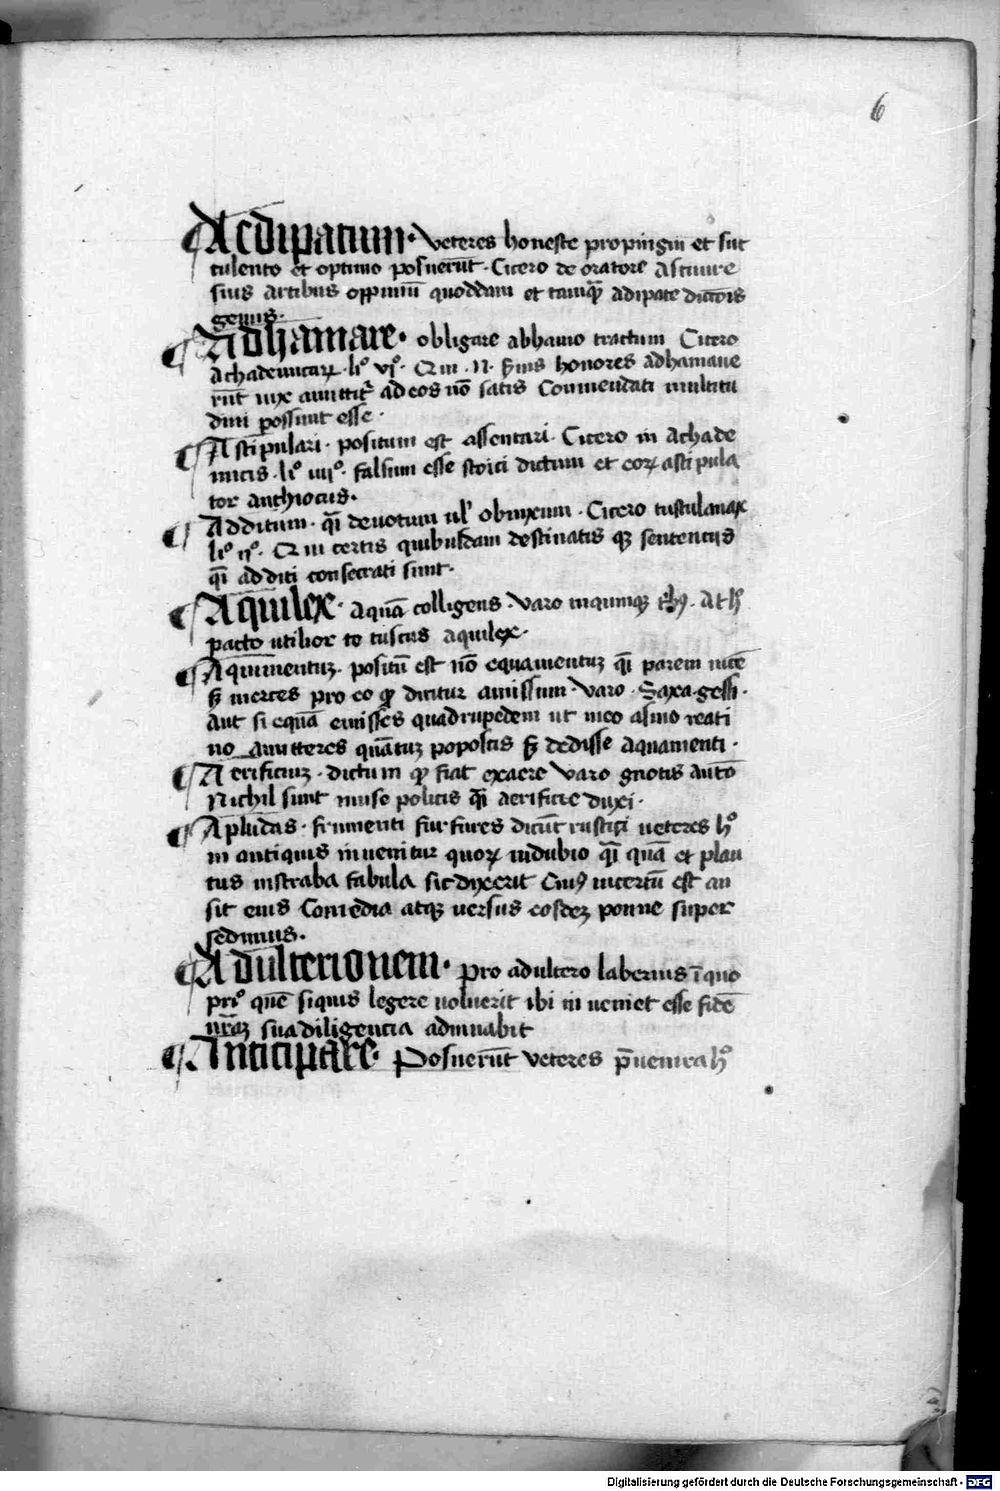 6
¶ Aedipatum · veteres honeste propingui et suc
tulento et optimo posuerūt · Cicero de oratore Asciuere
suis artibus oppimū quoddam et tamq̄ adipate dictōis
genus ·
¶ Adhamare · obligare abhamo tractum Cicero
Achademicaꝝ · liº vjº · Qui · N · p̄mis honores adhamaue
rūt vix amittit᷑ ad eos nō satis Commendati multitu
dini possunt esse ·
¶ Astipulari · positum est assentari · Cicero in Achade
micis · liº iiijº · falsum esse stoici dictum et eoꝝ astipula
tor anthiocus ·
¶ Additum · q̄i deuotum ul' obnixum · Cicero tusculanaꝝ
liº ijº · Qui certis quibusdam destinatis qꝫ sentencijs
q̄i additi consecrati sunt ·
¶ Aquilex · Aquā colligens · Varo
pacto utilior te tuscus aquilex ·
¶ Aquimentuꝫ · positū est nō equamentuꝫ q̄i parem
merces pro eo dicitur amissum · Varo · Saxa · gessi ·
Aut si equā emisses quadrupedem ut meo asino reati
no amitteres quātuꝫ poposcis dedisse aquamenti ·
¶ Aerificiuꝫ · dictum fiat exaere Varo gnotis autō
Nichil sunt muse policis q̄i aerificie duxei ·
¶ Apludas · frumenti furfures dicūt rustici veteres hº
in antiquis inuenitur quoꝝ indubio q̄i quā et plau
tus instraba fabula sic dixerit Cuiꝰ incertū est an
sit eius Comedia atqꝫ versus eosdeꝫ ponne super
sedimus ·
¶ Adulterionem · pro adultero laberius ī quo
priº quē siquis legere voluerit ibi in veniet esse fidē
n̄raꝫ sua diligencia admuabit
¶ Anticipare · Posuerūt veteres p̄uenire hº
Digitalisierung gefördert durch die Deutsche Forschungsgemeinschaft - DFG